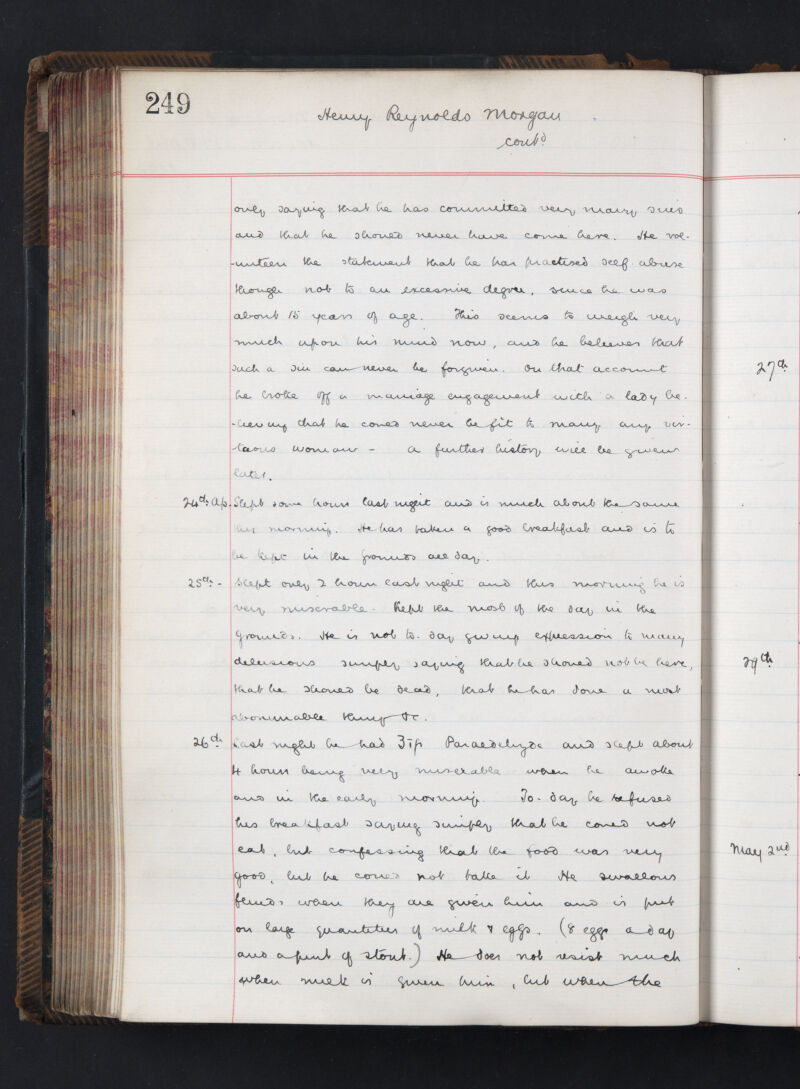 249
Henry Reynolds Morgan
contd
only saying that he has committed very many sins
and that he should never have come here. He vol-
-unteers the statement that he has practised self abuse
though not to an excessive degree, since he was
about 15 years of age. This seems to weigh very
much upon his mind now, and he believes that
such a sin can never be forgiven. On that account
he broke off a marriage engagement with a lady be-
-lieving that he could never be fit to marry any vir-
-tuous woman - a further history will be given
later.
24th Ap. Slept some hours last night and is much about the same
this morning. He has taken a good breakfast and is to
be kept in the grounds all day.
25th - Slept only 2 hours last night and this morning he is
very miserable. Kept the most of the day in the
grounds. He is not to-day giving expression to many
delusions simply saying that he should not be here,
that he should be dead, that he has done a most
abominable thing &c.
26th Last night he had ʒiſs Paraldehyde and slept about
4 hours being very miserable when he awoke
and in the early morning. To-day he refused
his breakfast saying simply that he could not
eat, but confessing that the food was very
good, but he could not take it He swallows
fluids when they are given him and is put
on large quantities of milk & eggs. (8 eggs a day
and a pint of stout.) He does not resist much
when milk is given him, but when the
27th
29th
May 2nd